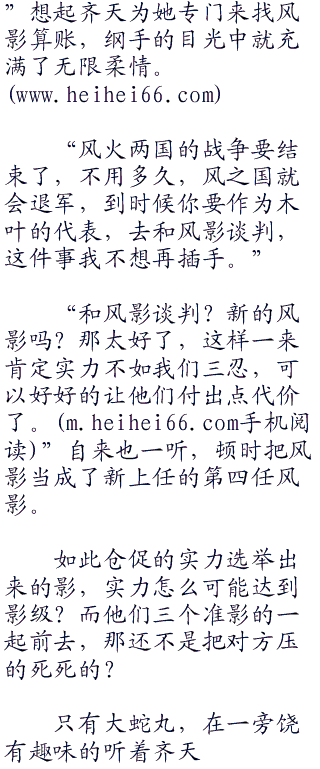 ”想起齐天为她专门来找风
影算账，纲手的目光中就充
满了无限柔情。
(www.heihei66.com)
“风火两国的战争要结
束了，不用多久，风之国就
会退军，到时候你要作为木
叶的代表，去和风影谈判，
这件事我不想再插手。”
“和风影谈判？新的风
影吗？那太好了，这样一来
肯定实力不如我们三忍，可
以好好的让他们付出点代价
了。(m.heihei66.com手机阅
读)”自来也一听，顿时把风
影当成了新上任的第四任风
影。
如此仓促的实力选举出
来的影，实力怎么可能达到
影级？而他们三个准影的一
起前去，那还不是把对方压
的死死的？
只有大蛇丸，在一旁饶
有趣味的听着齐天